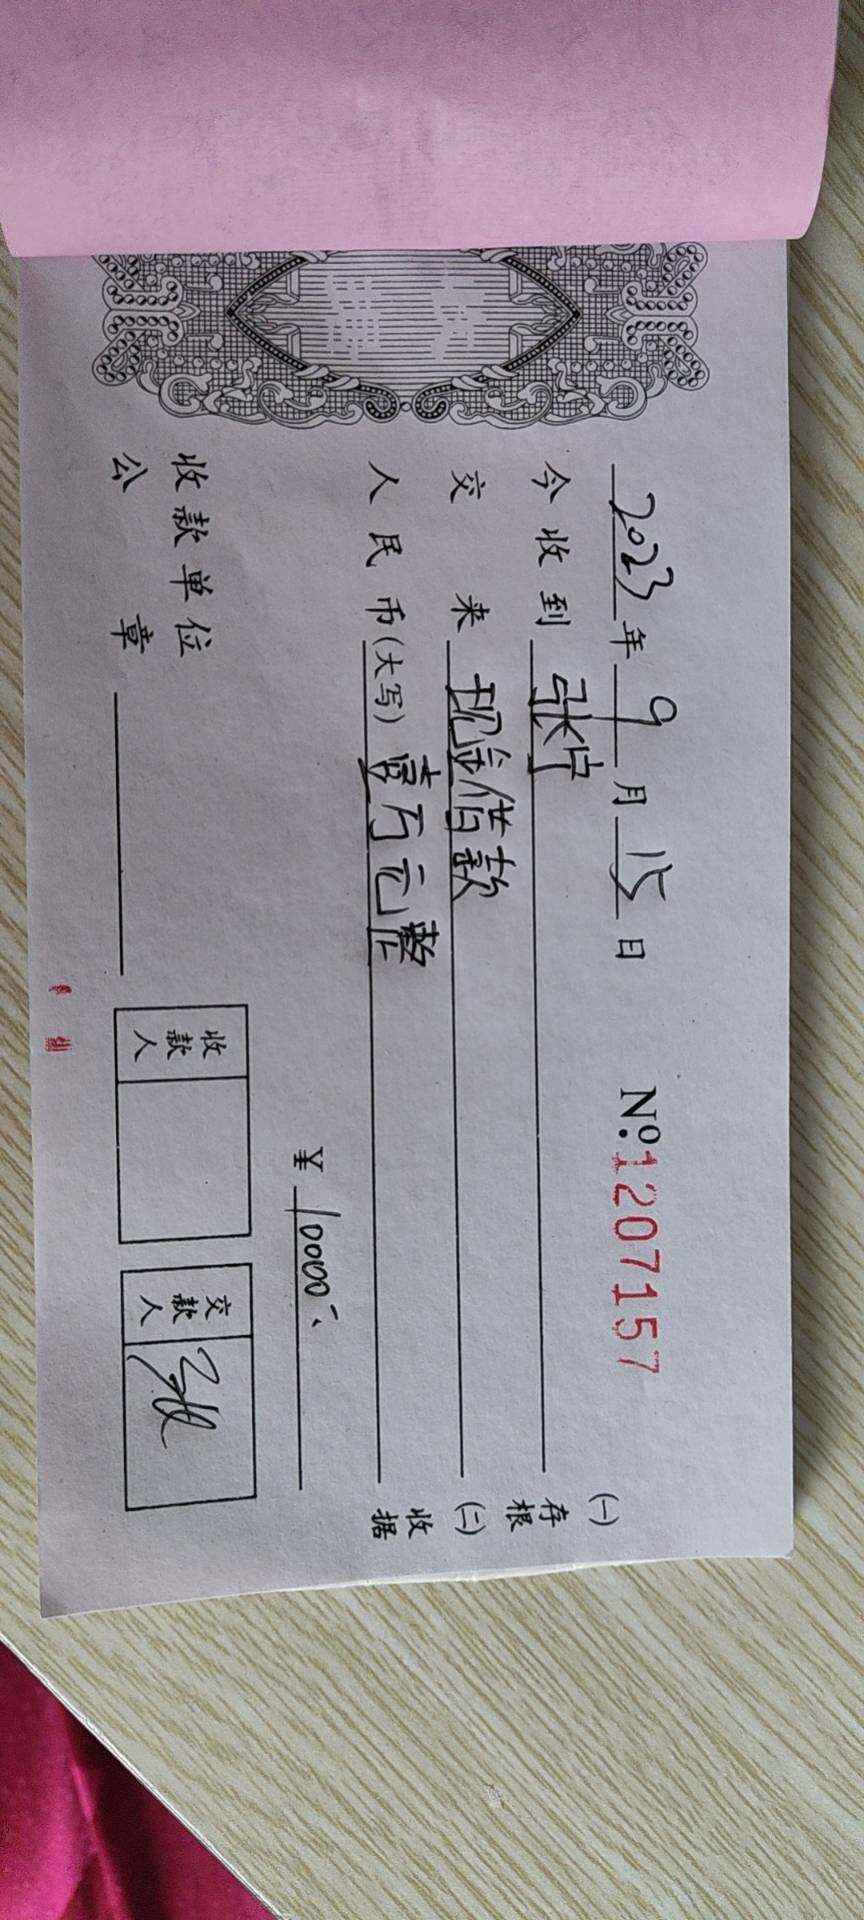 2023年9月15日 №1207157
今收到 张宁
交来 现金借款
人民币(大写) 壹万元整
¥ 10000
收款单位
公章
收款人
交款人 张
(一)存根
(二)收据